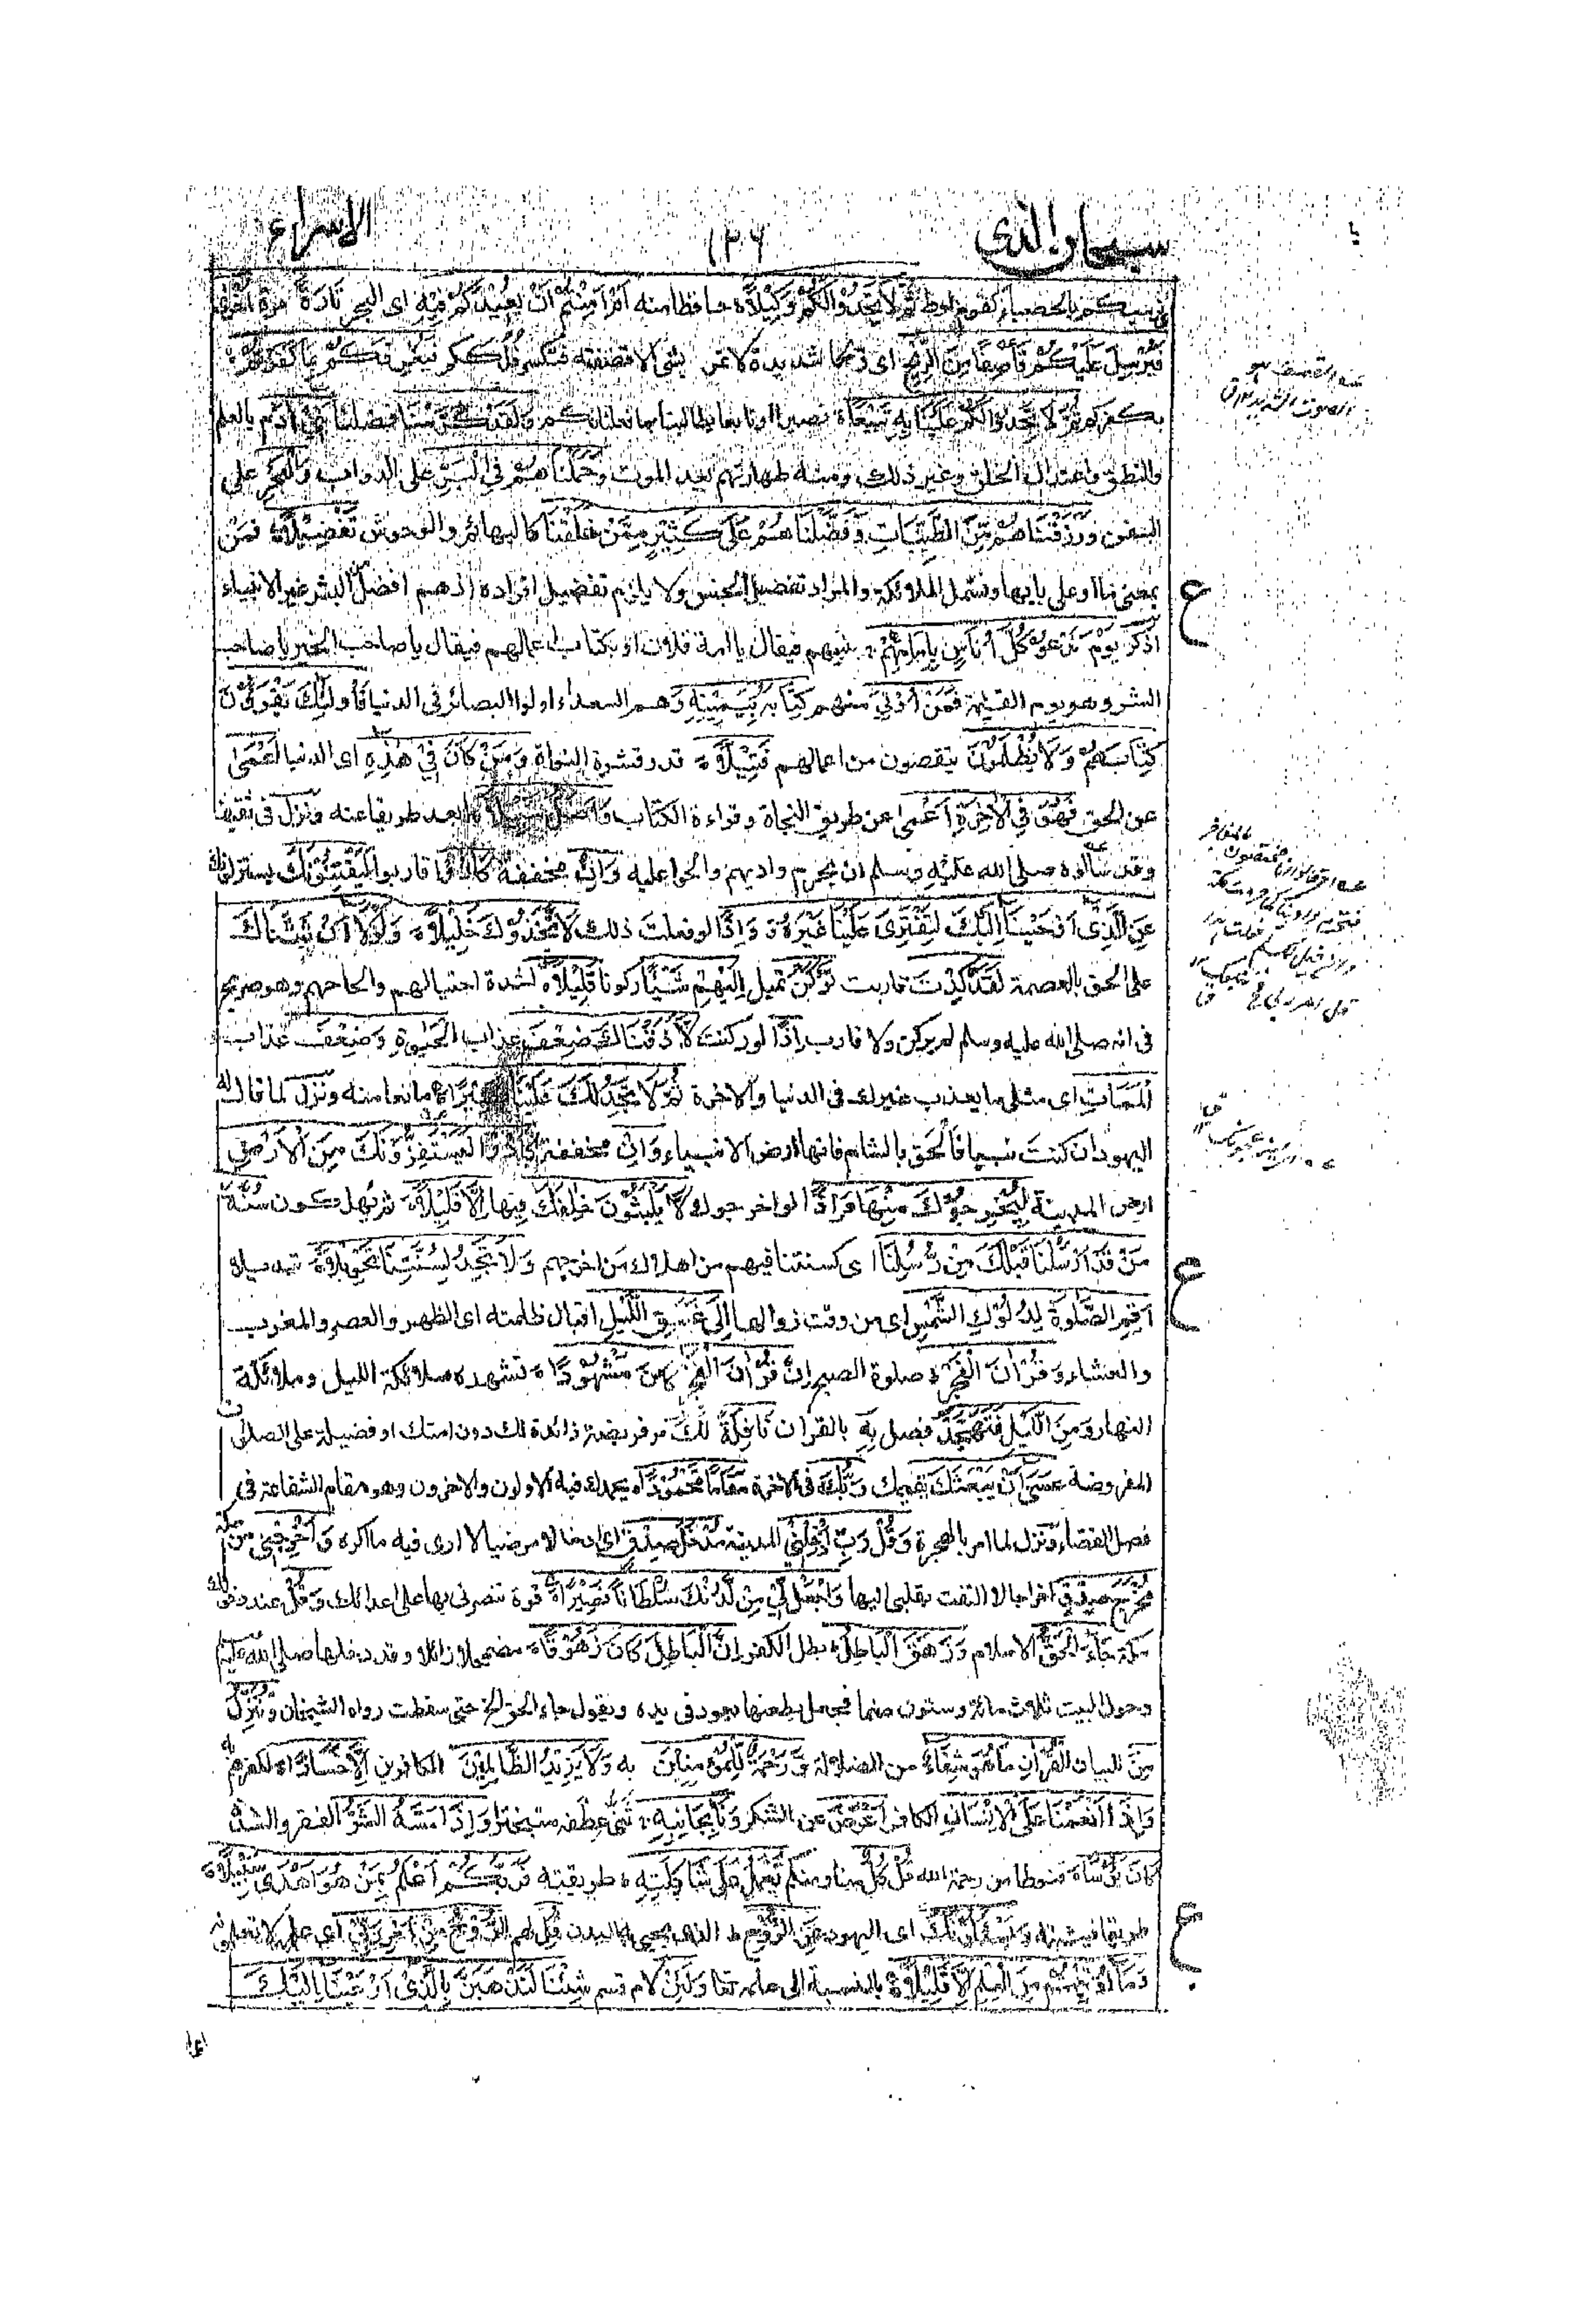 سبحان الذى
١٣٦
الاسراء
يرميكم بالحصباء كقوم لوط ثُمَّ لَا تَجِدُوْا لَكُمْ وَكِيْلًا حافظا منه اَمْ اَمِنْتُمْ اَنْ يُعِيْدَكُمْ فِيْهِ اى البحر تَارَةً مرة اُخْرٰى
فَيُرْسِلَ عَلَيْكُمْ قَاصِفًا مِّنَ الرِّيْحِ اى ريحا شديدة لا تمر بشئ الا قصفته فتكسر فُلككم فَيُغْرِقَكُمْ بِمَا كَفَرْتُمْ
بكفركم ثُمَّ لَا تَجِدُوْا لَكُمْ عَلَيْنَا بِهٖ تَبِيْعًا نصيرا او تابعا يطالبنا بما فعلنا بكم وَلَقَدْ كَرَّمْنَا فضلنا بَنِىْ اٰدَمَ بالعلم
والنطق واعتدال الخلق وغير ذلك ومنه طهارتهم بعد الموت وَحَمَلْنَاهُمْ فِى الْبَرِّ على الدواب وَالْبَحْرِ على
السفن وَرَزَقْنَاهُمْ مِّنَ الطَّيِّبَاتِ وَفَضَّلْنَاهُمْ عَلٰى كَثِيْرٍ مِّمَّنْ خَلَقْنَا كالبهائم والوحوش تَفْضِيْلًا فمَن
بمعنى ما او على بابها وتشمل الملائكة والمراد تفضيل الجنس ولا يلزم تفضيل افراده اذ هم افضل من البشر غير الانبياء
اذكر يَوْمَ نَدْعُوْ كُلَّ اُنَاسٍ بِاِمَامِهِمْ نبيهم فيقال يا امة فلان او بكتاب اعمالهم فيقال يا صاحب الخير يا صاحب
الشر وهو يوم القيمة فَمَنْ اُوْتِىَ منهم كِتَابَهٗ بِيَمِيْنِهٖ وهم السعداء اولوا البصائر فى الدنيا فَاُولٰٓئِكَ يَقْرَءُوْنَ
كِتَابَهُمْ وَلَا يُظْلَمُوْنَ ينقصون من اعمالهم فَتِيْلًا قدر قشرة النواة وَمَنْ كَانَ فِىْ هٰذِهٖ اى الدنيا اَعْمٰى
عن الحق فَهُوَ فِى الْاٰخِرَةِ اَعْمٰى عن طريق النجاة وقراءة الكتاب وَاَضَلُّ سَبِيْلًا ابعد طريقا عنه ونزل فى ثقيف
وقد سألوه صلى الله عليه وسلم ان يحرم واديهم والحوا عليه وَاِنْ مخففة كَادُوْا قاربوا لَيَفْتِنُوْنَكَ يستزلونك
عَنِ الَّذِىْ اَوْحَيْنَا اِلَيْكَ لِتَفْتَرِىَ عَلَيْنَا غَيْرَهٗ وَاِذًا لو فعلت ذلك لَاتَّخَذُوْكَ خَلِيْلًا وَلَوْلَا اَنْ ثَبَّتْنَاكَ
على الحق بالعصمة لَقَدْ كِدْتَ قاربت تَرْكَنُ تميل اِلَيْهِمْ شَيْئًا ركونا قَلِيْلًا لشدة احتيالهم والحاحهم وهو صريح
فى انه صلى الله عليه وسلم لم يركن ولا قارب اِذًا لو ركنت لَاَذَقْنَاكَ ضِعْفَ عذاب الْحَيٰوةِ وَضِعْفَ عذاب
الْمَمَاتِ اى مثلى ما يعذب غيرك فى الدنيا والآخرة ثُمَّ لَا تَجِدُ لَكَ عَلَيْنَا نَصِيْرًا مانعا منه ونزل لما قال له
اليهود ان كنت نبيا فالحق بالشام فانها ارض الانبياء وَاِنْ مخففة كَادُوْا لَيَسْتَفِزُّوْنَكَ مِنَ الْاَرْضِ
ارض المدينة لِيُخْرِجُوْكَ مِنْهَا وَاِذًا لو اخرجوك لَّا يَلْبَثُوْنَ خِلٰفَكَ فيها اِلَّا قَلِيْلًا ثم يهلكون سُنَّةَ
مَنْ قَدْ اَرْسَلْنَا قَبْلَكَ مِنْ رُّسُلِنَا اى كسنتنا فيهم من اهلاك من اخرجهم وَلَا تَجِدُ لِسُنَّتِنَا تَحْوِيْلًا تبديلا
اَقِمِ الصَّلٰوةَ لِدُلُوْكِ الشَّمْسِ اى من وقت زوالها اِلٰى غَسَقِ اللَّيْلِ اقبال ظلمته اى الظهر والعصر والمغرب
والعشاء وَقُرْاٰنَ الْفَجْرِ صلوة الصبح اِنَّ قُرْاٰنَ الْفَجْرِ كَانَ مَشْهُوْدًا تشهده ملائكة الليل وملائكة
النهار وَمِنَ اللَّيْلِ فَتَهَجَّدْ فصل بِهٖ بالقران نَافِلَةً لَّكَ فريضة زائدة لك دون امتك او فضيلة على الصلوات
المفروضة عَسٰى اَنْ يَّبْعَثَكَ يقيمك رَبُّكَ فى الاخرة مَقَامًا مَّحْمُوْدًا يحمدك فيه الاولون والاخرون وهو مقام الشفاعة فى
فصل القضاء ونزل لما امر بالهجرة وَقُلْ رَبِّ اَدْخِلْنِىْ المدينة مُدْخَلَ صِدْقٍ اى ادخالا مرضيا لا ارى فيه ما اكره وَاَخْرِجْنِىْ من مكة
مُخْرَجَ صِدْقٍ اخراجا لا التفت بقلبى اليها وَاجْعَلْ لِّىْ مِنْ لَّدُنْكَ سُلْطَانًا نَّصِيْرًا قوة تنصرنى بها على اعدائك وَقُلْ عند دخولك
مكة جَاءَ الْحَقُّ الاسلام وَزَهَقَ الْبَاطِلُ بطل الكفر اِنَّ الْبَاطِلَ كَانَ زَهُوْقًا مضمحلا زائلا وقد دخلها صلى الله عليه
وحول البيت ثلاث مائة وستون صنما فجعل يطعنها بعود فى يده ويقول جاء الحق الخ حتى سقطت رواه الشيخان وَنُنَزِّلُ
مِنَ للبيان الْقُرْاٰنِ مَا هُوَ شِفَاءٌ من الضلالة وَّرَحْمَةٌ لِّلْمُؤْمِنِيْنَ به وَلَا يَزِيْدُ الظَّالِمِيْنَ الكافرين اِلَّا خَسَارًا لكفرهم به
وَاِذَا اَنْعَمْنَا عَلَى الْاِنْسَانِ الكافر اَعْرَضَ عن الشكر وَنَاٰ بِجَانِبِهٖ ثنى عطفه متبخترا وَاِذَا مَسَّهُ الشَّرُّ الفقر والشدة
كَانَ يَئُوْسًا قنوطا من رحمة الله قُلْ كُلٌّ منا ومنكم يَّعْمَلُ عَلٰى شَاكِلَتِهٖ طريقته فَرَبُّكُمْ اَعْلَمُ بِمَنْ هُوَ اَهْدٰى سَبِيْلًا
طريقا فيثيبه وَيَسْئَلُوْنَكَ اى اليهود عَنِ الرُّوْحِ الذى يحيى به البدن قُلِ لهم الرُّوْحُ مِنْ اَمْرِ رَبِّىْ اى علمه لا تعلمونه
وَمَا اُوْتِيْتُمْ مِّنَ الْعِلْمِ اِلَّا قَلِيْلًا بالنسبة الى علمه تعا وَلَئِنْ لام قسم شِئْنَا لَنَذْهَبَنَّ بِالَّذِىْ اَوْحَيْنَا اِلَيْكَ
ع
ع
ع